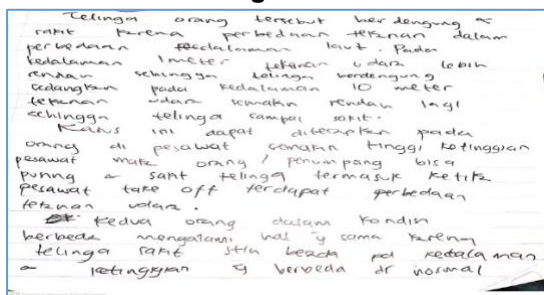 Telinga orang tersebut berdengung &
sakit karena perbedaan tekanan dalam
perbedaan kedalaman laut. Pada
kedalaman 1 meter tekanan udara lebih
rendah sehingga telinga berdengung
sedangkan pada kedalaman 10 meter
tekanan udara semakin rendah lagi
sehingga telinga sampai sakit.
Kasus ini dapat diterapkan pada
orang di pesawat semakin tinggi ketinggian
pesawat maka orang / penumpang bisa
pusing & sakit telinga termasuk ketika
pesawat take off terdapat perbedaan
tekanan udara.
Kedua orang dalam kondisi
berbeda mengalami hal yg sama karena
telinga sakit berada pd kedalaman
& ketinggian yg berbeda dr normal